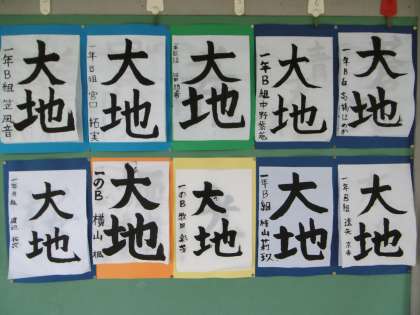 大地
一年B組 笠 風音
大地
一年B組 宮口 拓実
大地
大地
一年B組 中野紫苑
大地
一年B組
大地
一年B組
大地
一のB 横山 楓
大地
一のB 牧田
大地
一年B組 横山莉玖
大地
一年B組